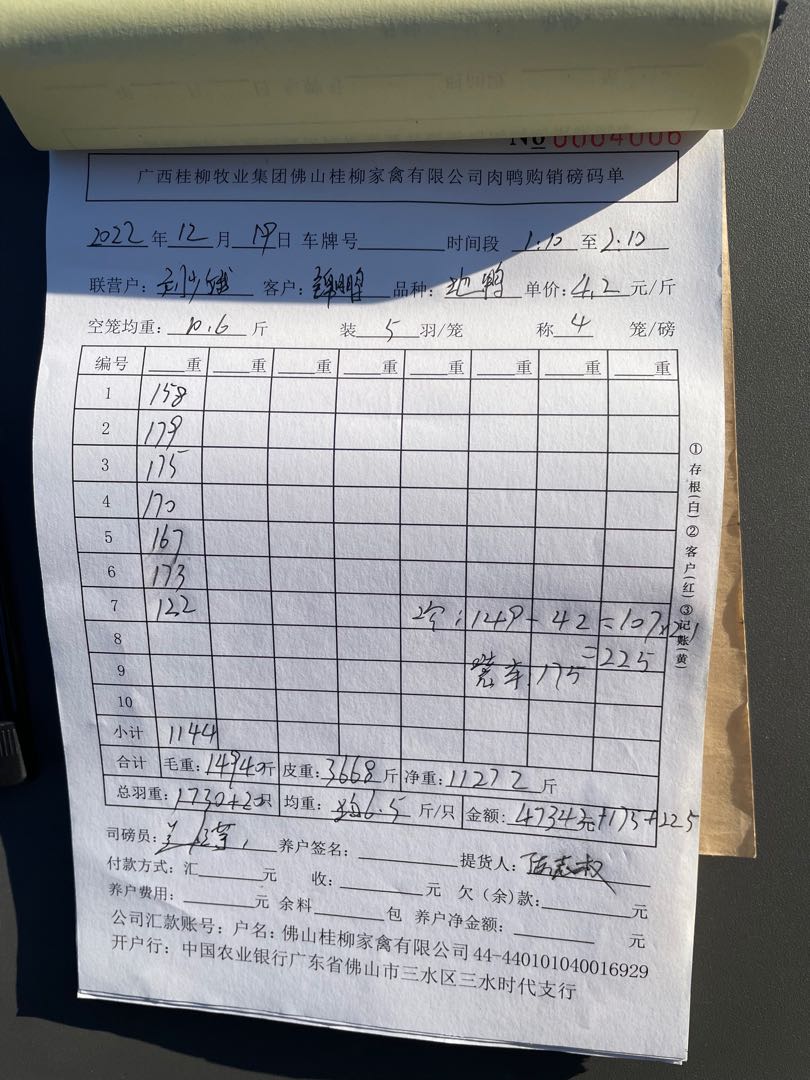 No 0004006
广西桂柳牧业集团佛山桂柳家禽有限公司肉鸭购销磅码单
2022年12月19日 车牌号 时间段 1:10至2:10
联营户: 客户:锦鹏 品种: 鸭 单价:4.2元/斤
空笼均重:10.6斤 装5羽/笼 称4笼/磅
编号 重 重 重 重 重 重 重 重
1 158
2 179
3 175
4 170
5 167
6 173
7 122 149-42=107×2.1
8 =225
9 装车:175
10
小计 1144
合计 毛重:14940斤 皮重:3668斤 净重:11272斤
总羽重:1730+2只 均重:6.5斤/只 金额:47342元+175+225
司磅员: 养户签名: 提货人:
付款方式:汇 元 收: 元 欠(余)款: 元
养户费用: 元 余料 包 养户净金额: 元
公司汇款账号:户名:佛山桂柳家禽有限公司44-440101040016929
开户行:中国农业银行广东省佛山市三水区三水时代支行
①存根(白)②客户(红)③记账(黄)